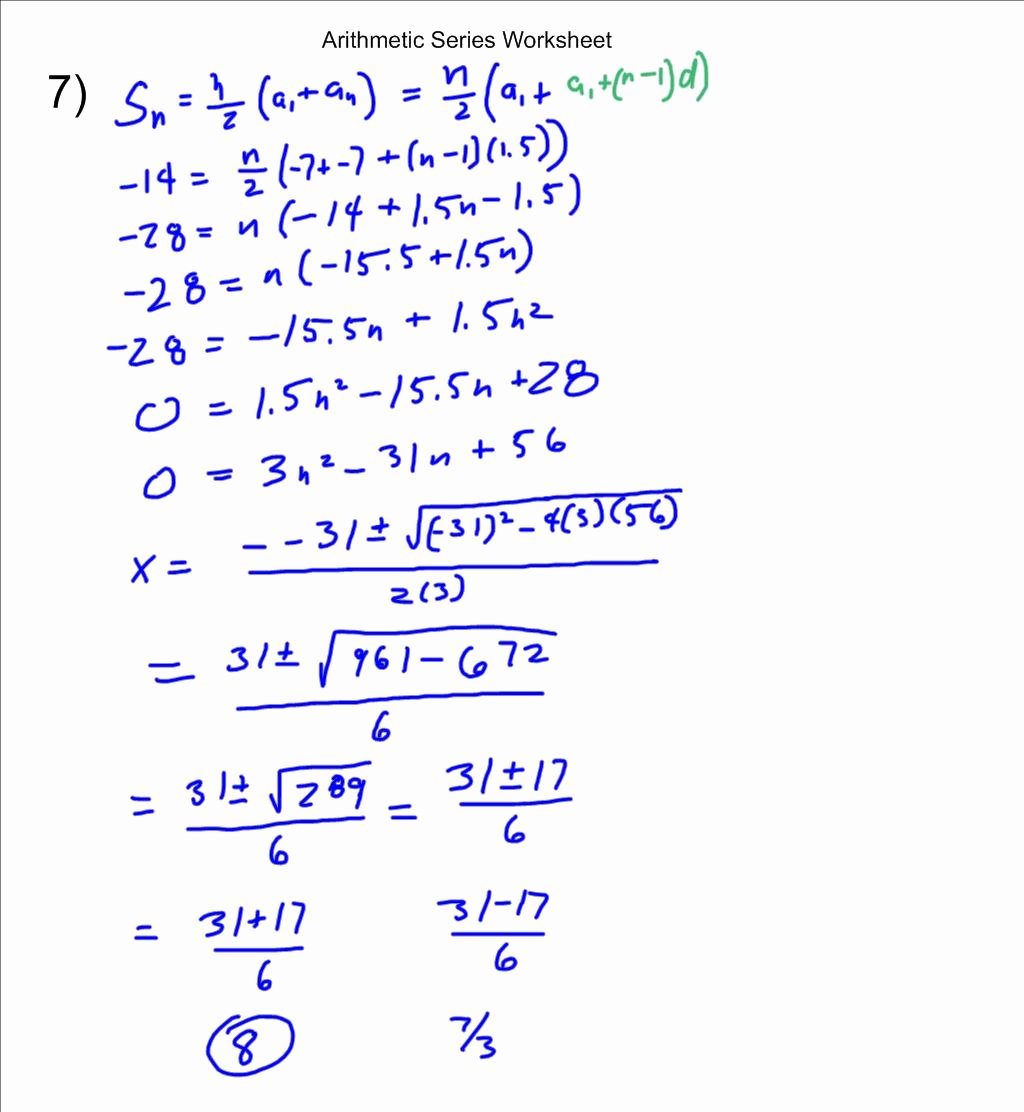 Arithmetic Series Worksheet
7) Sₙ = n/2 (a₁ + aₙ) = n/2 (a₁ + a₁ + (n-1)d)
-14 = n/2 (-7 + -7 + (n-1)(1.5))
-28 = n (-14 + 1.5n - 1.5)
-28 = n (-15.5 + 1.5n)
-28 = -15.5n + 1.5n²
0 = 1.5n² - 15.5n + 28
0 = 3n² - 31n + 56
x = (- -31 ± √((-31)² - 4(3)(56))) / 2(3)
= (31 ± √(961 - 672)) / 6
= (31 ± √289) / 6 = (31 ± 17) / 6
= (31+17) / 6 (31-17) / 6
8 7/3